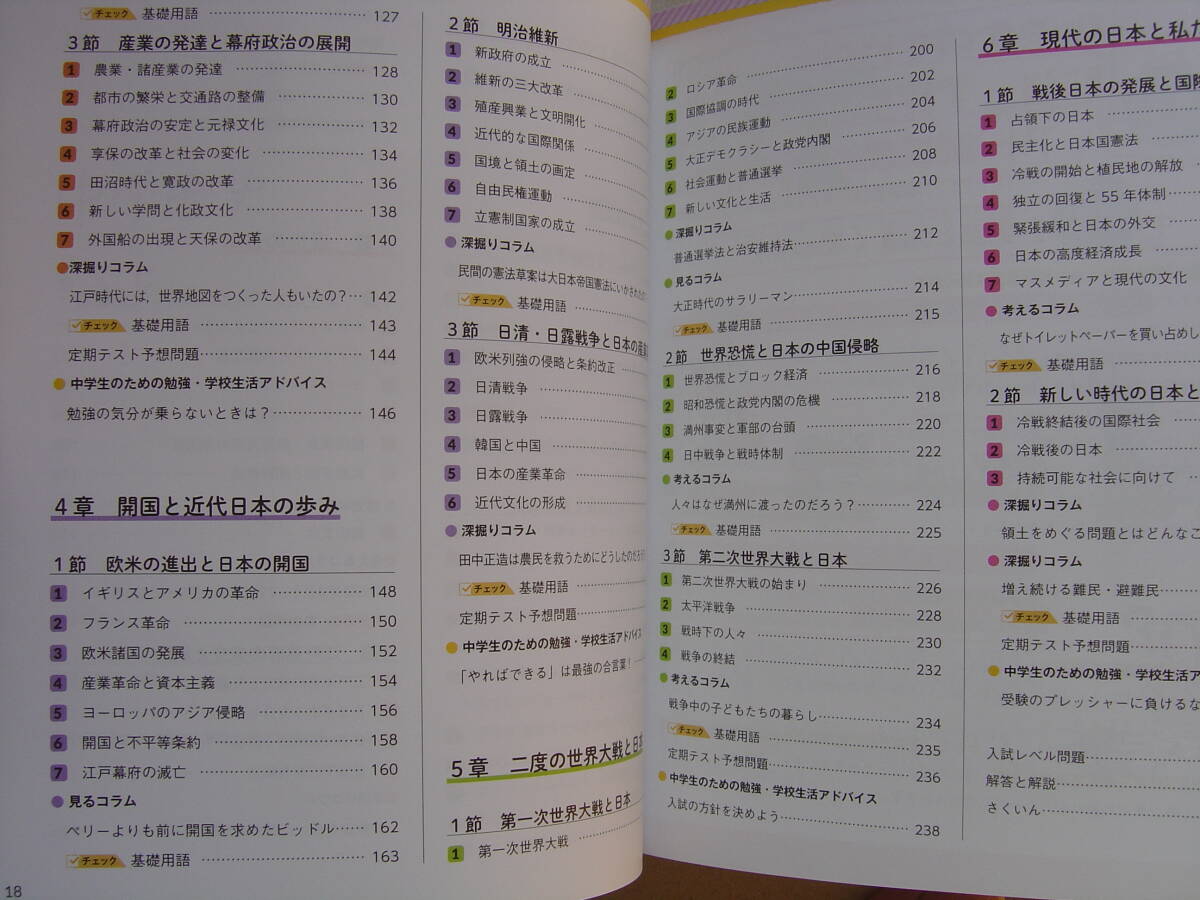 チェック 基礎用語 127
3節 産業の発達と幕府政治の展開
1 農業・諸産業の発達 128
2 都市の繁栄と交通路の整備 130
3 幕府政治の安定と元禄文化 132
4 享保の改革と社会の変化 134
5 田沼時代と寛政の改革 136
6 新しい学問と化政文化 138
7 外国船の出現と天保の改革 140
●深掘りコラム
江戸時代には，世界地図をつくった人もいたの？… 142
チェック 基礎用語 143
定期テスト予想問題 144
●中学生のための勉強・学校生活アドバイス
勉強の気分が乗らないときは？ 146
4章 開国と近代日本の歩み
1節 欧米の進出と日本の開国
1 イギリスとアメリカの革命 148
2 フランス革命 150
3 欧米諸国の発展 152
4 産業革命と資本主義 154
5 ヨーロッパのアジア侵略 156
6 開国と不平等条約 158
7 江戸幕府の滅亡 160
●見るコラム
ペリーよりも前に開国を求めたビッドル…… 162
チェック 基礎用語 163
18
2節 明治維新
1 新政府の成立
2 維新の三大改革
3 殖産興業と文明開化
4 近代的な国際関係
5 国境と領土の画定
6 自由民権運動
7 立憲制国家の成立
●深掘りコラム
民間の憲法草案は大日本帝国憲法にいかされた
チェック 基礎用語
3節 日清・日露戦争と日本の産業
1 欧米列強の侵略と条約改正
2 日清戦争
3 日露戦争
4 韓国と中国
5 日本の産業革命
6 近代文化の形成
●深掘りコラム
田中正造は農民を救うためにどうしたのだろ
チェック 基礎用語
定期テスト予想問題
●中学生のための勉強・学校生活アドバイス
「やればできる」は最強の合言葉！
5章 二度の世界大戦と日本
1節 第一次世界大戦と日本
1 第一次世界大戦
2 ロシア革命 200
3 国際協調の時代 202
4 アジアの民族運動 204
5 大正デモクラシーと政党内閣 206
6 社会運動と普通選挙 208
7 新しい文化と生活 210
●深掘りコラム
普通選挙法と治安維持法 212
●見るコラム
大正時代のサラリーマン 214
チェック 基礎用語 215
2節 世界恐慌と日本の中国侵略
1 世界恐慌とブロック経済 216
2 昭和恐慌と政党内閣の危機 218
3 満州事変と軍部の台頭 220
4 日中戦争と戦時体制 222
●考えるコラム
人々はなぜ満州に渡ったのだろう？ 224
チェック 基礎用語 225
3節 第二次世界大戦と日本
1 第二次世界大戦の始まり 226
2 太平洋戦争 228
3 戦時下の人々 230
4 戦争の終結 232
●考えるコラム
戦争中の子どもたちの暮らし 234
チェック 基礎用語 235
定期テスト予想問題 236
●中学生のための勉強・学校生活アドバイス
入試の方針を決めよう 238
6章 現代の日本と私た
1節 戦後日本の発展と国際
1 占領下の日本
2 民主化と日本国憲法
3 冷戦の開始と植民地の解放
4 独立の回復と55年体制
5 緊張緩和と日本の外交
6 日本の高度経済成長
7 マスメディアと現代の文化
●考えるコラム
なぜトイレットペーパーを買い占めし
チェック 基礎用語
2節 新しい時代の日本と
1 冷戦終結後の国際社会
2 冷戦後の日本
3 持続可能な社会に向けて
●深掘りコラム
領土をめぐる問題とはどんなこ
●深掘りコラム
増え続ける難民・避難民
チェック 基礎用語
定期テスト予想問題
●中学生のための勉強・学校生活ア
受験のプレッシャーに負けるな
入試レベル問題
解答と解説
さくいん